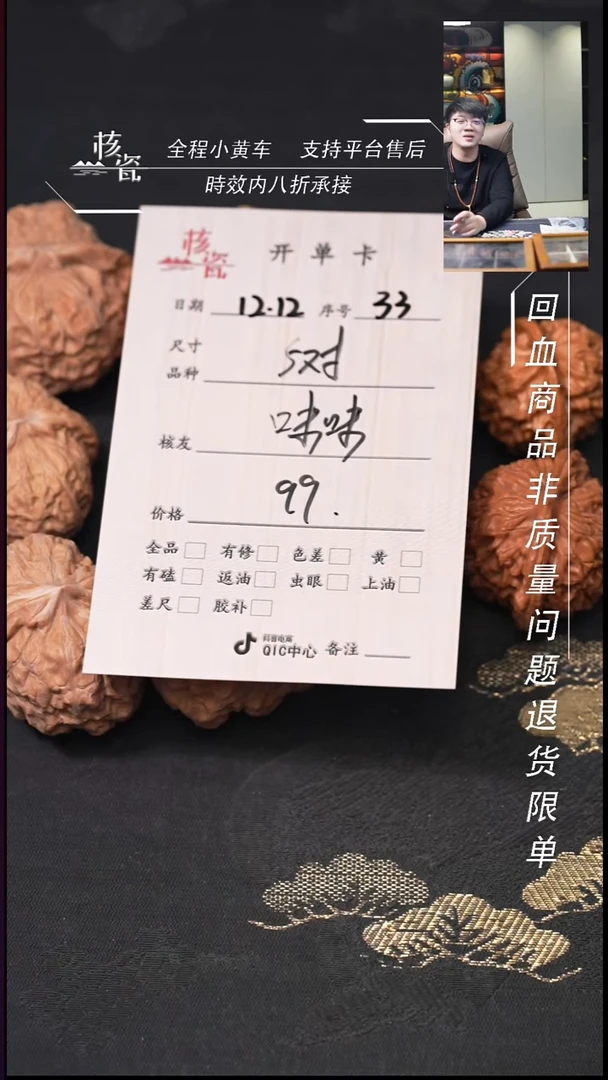 核瓷
全程小黄车 支持平台售后
時效内八折承接
核瓷
开单卡
日期 12.12 序号 33
尺寸
品种 5对
核友 咪咪
价格 99.
全品 有修 色差 黄
有磕 返油 虫眼 上油
差尺 胶补
抖音电商
QIC中心 备注
回血商品非质量问题退货限单